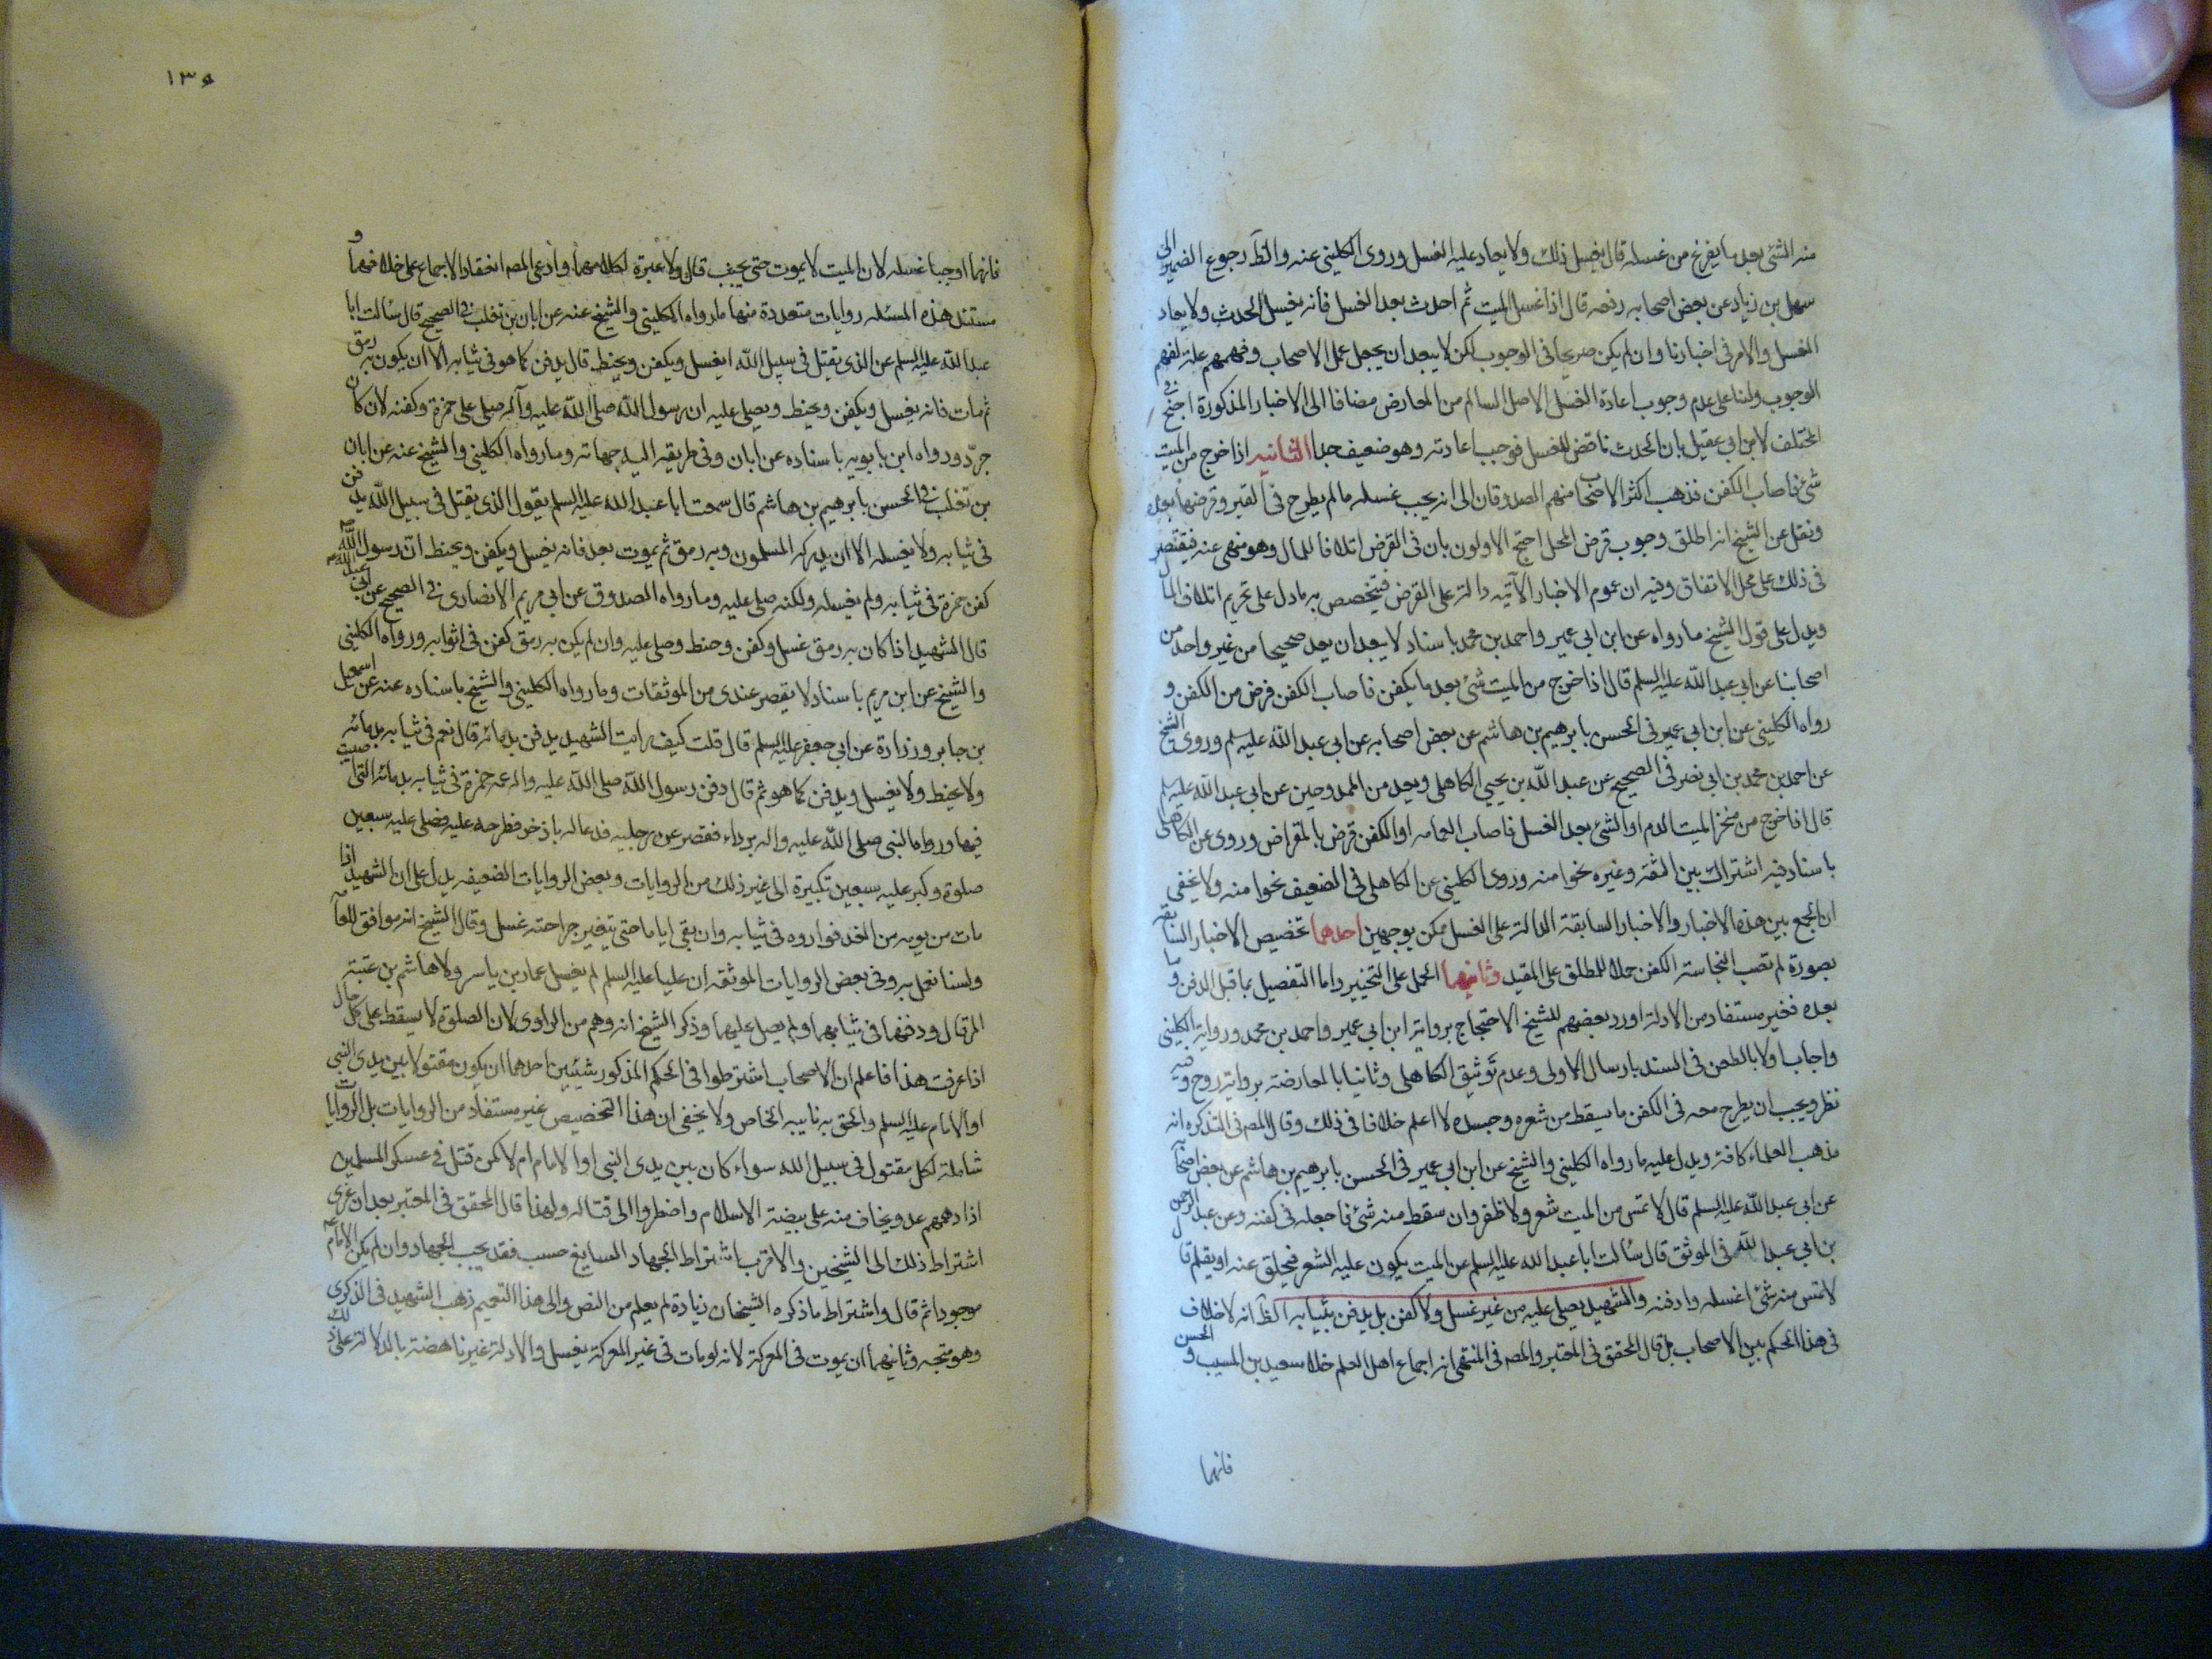 منه الشئ بعد ما يفرغ من غسله قال يغسل ذلك ولا يعاد عليه الغسل وروى الكليني عنه والظ رجوع الضمير الى
سهل بن زياد عن بعض اصحابه رفعه قال اذا غسل الميت ثم احدث بعد الغسل فانه يغسل الحدث ولا يعاد
الغسل والامر في اخبارنا وان لم يكن صريحا في الوجوب لكن لا يبعد ان يجعل عمل الاصحاب وفهمهم علة لفهم
الوجوب ولنا على عدم وجوب اعادة الغسل الاصل السالم من المعارض مضافا الى الاخبار المذكورة احتج في
المختلف لابن ابي عقيل بان الحدث ناقض للغسل فوجب اعادته وهو ضعيف جدا الثانيه اذا خرج من الميت
شئ فاصاب الكفن فذهب اكثر الاصحاب منهم الصدوقان الى انه يجب غسله ما لم يطرح في القبر وقرضها بعده
ونقل عن الشيخ انه اطلق وجوب قرض المحل احتج الاولون بان في القرض اتلافا للمال وهو منهى عنه فيقتصر
في ذلك على محل الاتفاق وفيه ان عموم الاخبار الآتيه دالة على القرض فيتخصص به ما دل على تحريم اتلاف المال
ويدل على قول الشيخ ما رواه عن ابن ابي عمير واحمد بن محمد باسناد لا يبعد ان يعد صحيحا من غير واحد من
اصحابنا عن ابي عبد الله عليه السلم قال اذا خرج من الميت شئ بعد ما يكفن فاصاب الكفن قرض من الكفن و
رواه الكليني عن ابن ابي عمير في الحسن بابرهيم بن هاشم عن بعض اصحابه عن ابي عبد الله عليه سلم وروى الشيخ
عن احمد بن محمد بن ابي نصر في الصحيح عن عبد الله بن يحيى الكاهلي ويعد من الممدوحين عن ابي عبد الله عليه سلم
قال اذا خرج من منخر الميت الدم او الشئ بعد الغسل فاصاب العمامه او الكفن قرض بالمقراض وروى عن الكاهلى
باسناد فيه اشتراك بين الثقة وغيره نحوا منه وروى الكليني عن الكاهلى في الضعيف نحوا منه ولا يخفى
ان الجمع بين هذه الاخبار والاخبار السابقة الدالة على الغسل ممكن بوجهين احدهما تخصيص الاخبار السابقة
بصورة لم تصب النجاسة الكفن حملا للمطلق على المقيد وثانيهما الحمل على التخيير واما التفصيل بما قبل الدفن وما
بعده فغير مستفاد من الادلة اورد بعضهم للشيخ الاحتجاج برواية ابن ابي عمير واحمد بن محمد ورواية الكليني
واجاب اولا بالطعن في السند بارسال الاولى وعدم توثيق الكاهلى وثانيا بالمعارضة برواية روح وفيه
نظر ويجب ان يطرح معه في الكفن ما يسقط من شعره وجسده لا اعلم خلافا في ذلك وقال المصه في التذكره انه
مذهب العلماء كافة ويدل عليه ما رواه الكليني والشيخ عن ابن ابي عمير في الحسن بابرهيم بن هاشم عن بعض اصحابه
عن ابي عبد الله عليه السلم قال لا تمس من الميت شعر ولا ظفر وان سقط منه شئ فاجعله في كفنه وعن عبد الرحمن
بن ابي عبد الله في الموثق قال سألت ابا عبد الله عليه السلم عن الميت يكون عليه الشعر فيحلق عنه او يقلم قال
لا تمس منه شئ اغسله وادفنه والشهيد يصلى عليه من غير غسل ولا كفن بل يدفن بثيابه الظ انه لا خلاف
في هذا الحكم بين الاصحاب بل قال المحقق في المعتبر والمصه في المنتهى انه اجماع اهل العلم خلا سعيد بن المسيب والحسن
فانهما
١٣٤
فانهما اوجبا غسله لان الميت لا يموت حتى يجنب قال ولا عبرة لكلامهما وادعى المصه انعقاد الاجماع على خلافهما و
مستند هذه المسئله روايات متعددة منها ما رواه الكليني والشيخ عنه عن ابان بن تغلب في الصحيح قال سألت ابا
عبد الله عليه السلم عن الذي يقتل في سبيل الله ايغسل ويكفن ويحنط قال يدفن كما هو في ثيابه الا ان يكون به رمق
ثم مات فانه يغسل ويكفن ويحنط ويصلى عليه ان رسول الله صلى الله عليه وآله صلى على حمزة وكفنه لانه كان
جرد ورواه ابن بابويه باسناده عن ابان وفي طريقه اليه جهالة وما رواه الكليني والشيخ عنه عن ابان
بن تغلب في الحسن بابرهيم بن هاشم قال سمعت ابا عبد الله عليه السلم يقول الذي يقتل في سبيل الله يدفن
في ثيابه ولا يغسل الا ان يدركه المسلمون وبه رمق ثم يموت بعد فانه يغسل ويكفن ويحنط ان رسول الله
كفن حمزة في ثيابه ولم يغسله ولكنه صلى عليه وما رواه الصدوق عن ابي مريم الانصاري في الصحيح عن ابي عبد الله
قال الشهيد اذا كان به رمق غسل وكفن وحنط وصلى عليه وان لم يكن به رمق كفن في اثوابه ورواه الكليني
والشيخ عن ابن مريم باسناد لا يقصر عندي من الموثقات وما رواه الكليني والشيخ باسناده عنه عن اسمعيل
بن جابر وزرارة عن ابي جعفر عليه السلم قال قلت كيف رايت الشهيد يدفن بدمائه قال نعم في ثيابه بدمائه
ولا يحنط ولا يغسل ويدفن كما هو ثم قال دفن رسول الله صلى الله عليه واله عمه حمزة في ثيابه بدمائه التي اصيب
فيها ورداه النبي صلى الله عليه واله برداء فقصر عن رجليه فدعا له باذخر فطرحه عليه وصلى عليه سبعين
صلوة وكبر عليه سبعين تكبيرة الى غير ذلك من الروايات وبعض الروايات الضعيفه يدل على ان الشهيد اذا
مات من يومه من الغد فواروه في ثيابه وان بقي اياما حتى يتغير جراحته غسل وقال الشيخ انه موافق للعامة
ولسنا نعمل به وفي بعض الروايات الموثقه ان عليا عليه السلم لم يغسل عمار بن ياسر ولا هاشم بن عتبة
المرقال ودفنهما في ثيابهما ولم يصل عليهما وذكر الشيخ انه وهم من الراوي لان الصلوة لا يسقط على كل حال
اذا عرفت هذا فاعلم ان الاصحاب اشترطوا في الحكم المذكور شيئين احدهما ان يكون مقتولا بين يدي النبي
او الامام عليه السلم والحق به نايبه الخاص ولا يخفى ان هذا التخصيص غير مستفاد من الروايات بل الروايات
شاملة لكل مقتول في سبيل الله سواء كان بين يدي النبي او الامام ام لا كمن قتل في عسكر المسلمين
اذا دهمهم عدو يخاف منه على بيضة الاسلام واضطروا الى قتاله ولهذا قال المحقق في المعتبر بعد ان عزى
اشتراط ذلك الى الشيخين والاقرب اشتراط الجهاد السايغ حسب فقد يجب الجهاد وان لم يكن الامام
موجودا ثم قال واشتراط ما ذكره الشيخان زيادة لم يعلم من النص والى هذا التعميم ذهب الشهيد في الذكرى
وهو متجه وثانيهما ان يموت في المعركة لانه لو مات في غير المعركة يغسل والادلة غير ناهضة بالدلالة على ذلك